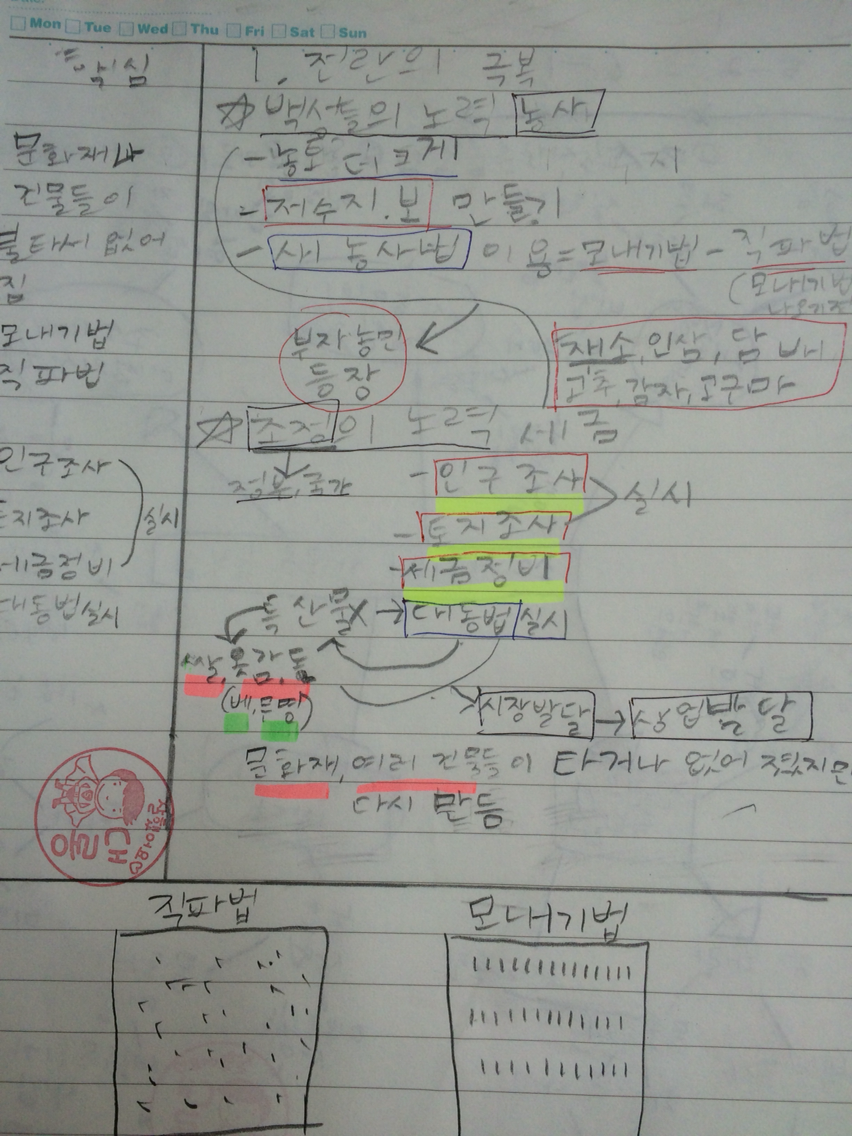 Mon Tue Wed Thu Fri Sat Sun
핵심
문화재나
건물들이
불타서 없어
짐
모내기법
직파법
인구조사
토지조사
세금정비
실시
대동법실시
1. 전란의 극복
☆ 백성들의 노력 농사
- 농토 더 크게
- 저수지.보 만들기
- 새 농사법 이용=모내기법 - 직파법
(모내기법
나오기전
부자농민
등장
채소,인삼,담배
고추,감자,고구마
☆ 조정의 노력 세금
정부,국가
- 인구조사
- 토지조사
실시
- 세금정비
특산물X → 대동법 실시
쌀,옷감,돈
(베,무명)
시장발달 → 상업발달
문화재,여러 건물들이 타거나 없어졌지만
다시 만듬
대룡
직파법
모내기법